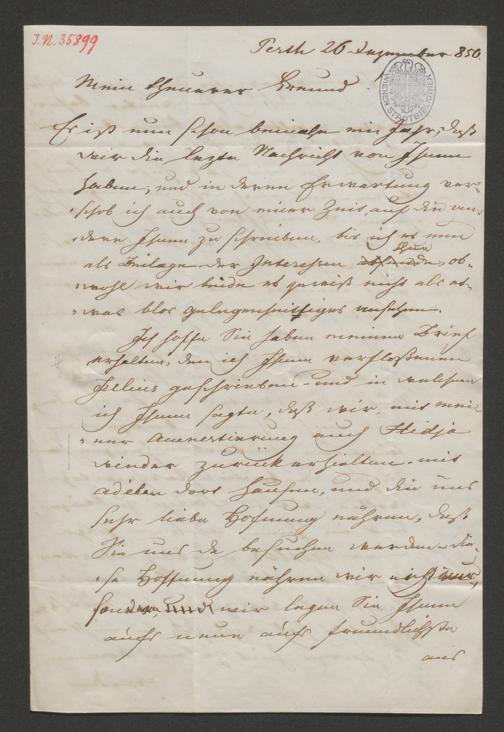 I.N. 35899
Pesth 26 Dezember 850.
Mein theuerer Freund!
Es ist nun schon beinahe ein Jahr, daß
wir die letzte Nachricht von Ihnen
haben, und in deren Erwartung ver-
schob ich auch von einer Zeit auf die an-
dere Ihnen zu schreiben, bis ich es nun
als Beilage der Interessen thue ob-
wohl wir beide es gewiß nicht als et-
was blos gelegenheitliches ansehen.
Ich hoffe Sie haben meinen Brief
erhalten, den ich Ihnen verfloßenen
geschrieben und in welchem
ich Ihnen sagte, daß wir mit mei-
ner auch
wieder zurückerhalten mit
Adelen dort hausen, und die uns
sehr liebe Hofnung nähren, daß
Sie uns da besuchen werden. Die-
se Hoffnung nähren wir nicht nur,
sondern und wir legen Sie Ihnen
aufs neue aufs freundlichste
ans